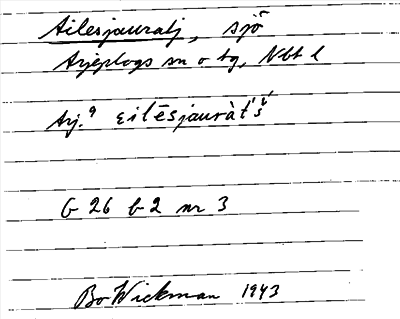 Ailesjauratj, sjö
Arjeplogs sn o tg, Nbt l
Arj. ɛilēsjauràt́š́
G 26 b 2 nr 3
Bo Wickman 1943